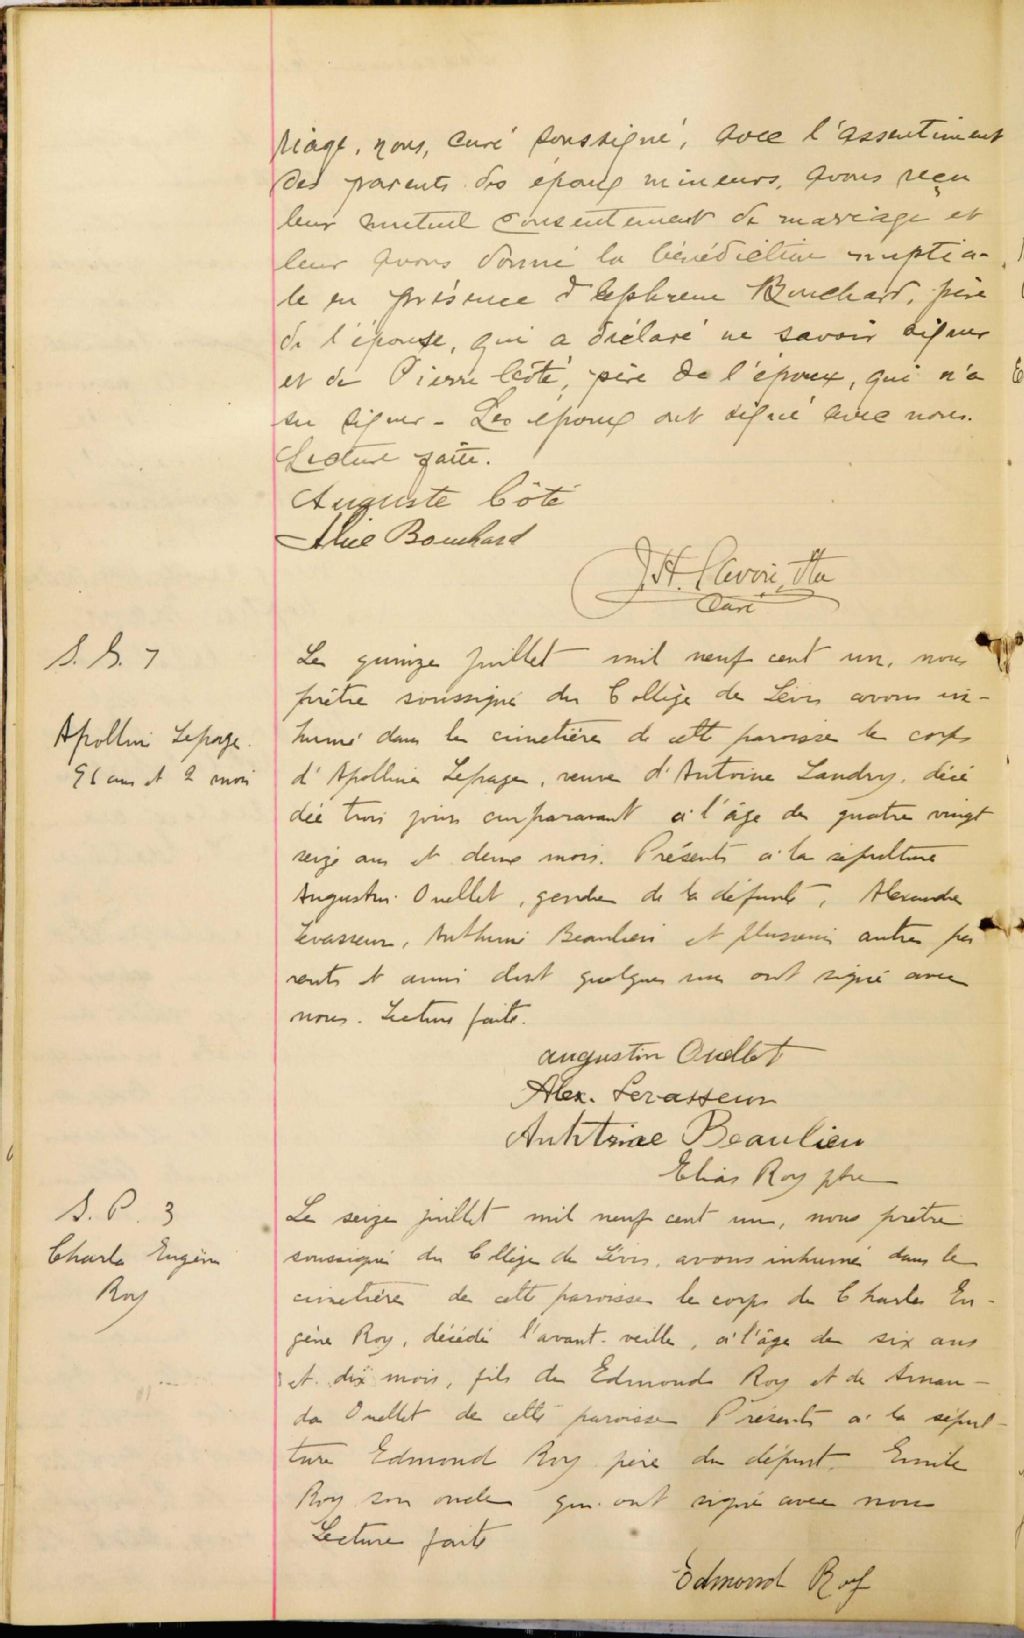 riage, nous, curé soussigné, avec l'assentiment
des parents des époux mineurs, avons reçu
leur mutuel consentement de mariage et
leur avons donné la bénédiction nuptia-
le en présence d'Ephrem Bouchard, père
de l'épouse, qui a déclaré ne savoir signer
et de Pierre Côté, père de l'époux, qui n'a
su signer - Les époux ont signé avec nous.
Lecture faite.
Auguste Côté
Alice Bouchard
Curé
S. G. 7
Apolline Lepage.
96 ans et 2 mois
Le quinze juillet mil neuf cent un, nous
prêtre soussigné du Collège de Lévis avons in-
humé dans le cimetière de cette paroisse le corps
d'Apolline Lepage, veuve d'Antoine Landry, décé
dée trois jours auparavant à l'âge de quatre vingt
seize ans et deux mois. Présents à la sépulture
Augustin Ouellet, gendre de la défunte, Alexandre
Levasseur, Anthime Beaulieu et plusieurs autres pa
rents et amis dont quelques uns ont signé avec
nous. Lecture faite.
augustin Ouellet
Alex. Levasseur
Beaulieu
Elias Roy ptre
S. P. 3
Charles Eugène
Roy
Le seize juillet mil neuf cent un, nous prêtre
soussigné du Collège de Lévis, avons inhumé dans le
cimetière de cette paroisse le corps de Charles Eu-
gène Roy, décédé l'avant-veille, à l'âge de six ans
et dix mois, fils de Edmond Roy et de Aman-
da Ouellet de cette paroisse Présents à la sépul-
ture Edmond Roy père du défunt Emile
Roy son oncle qui ont signé avec nous
Lecture faite
Edmond Roy